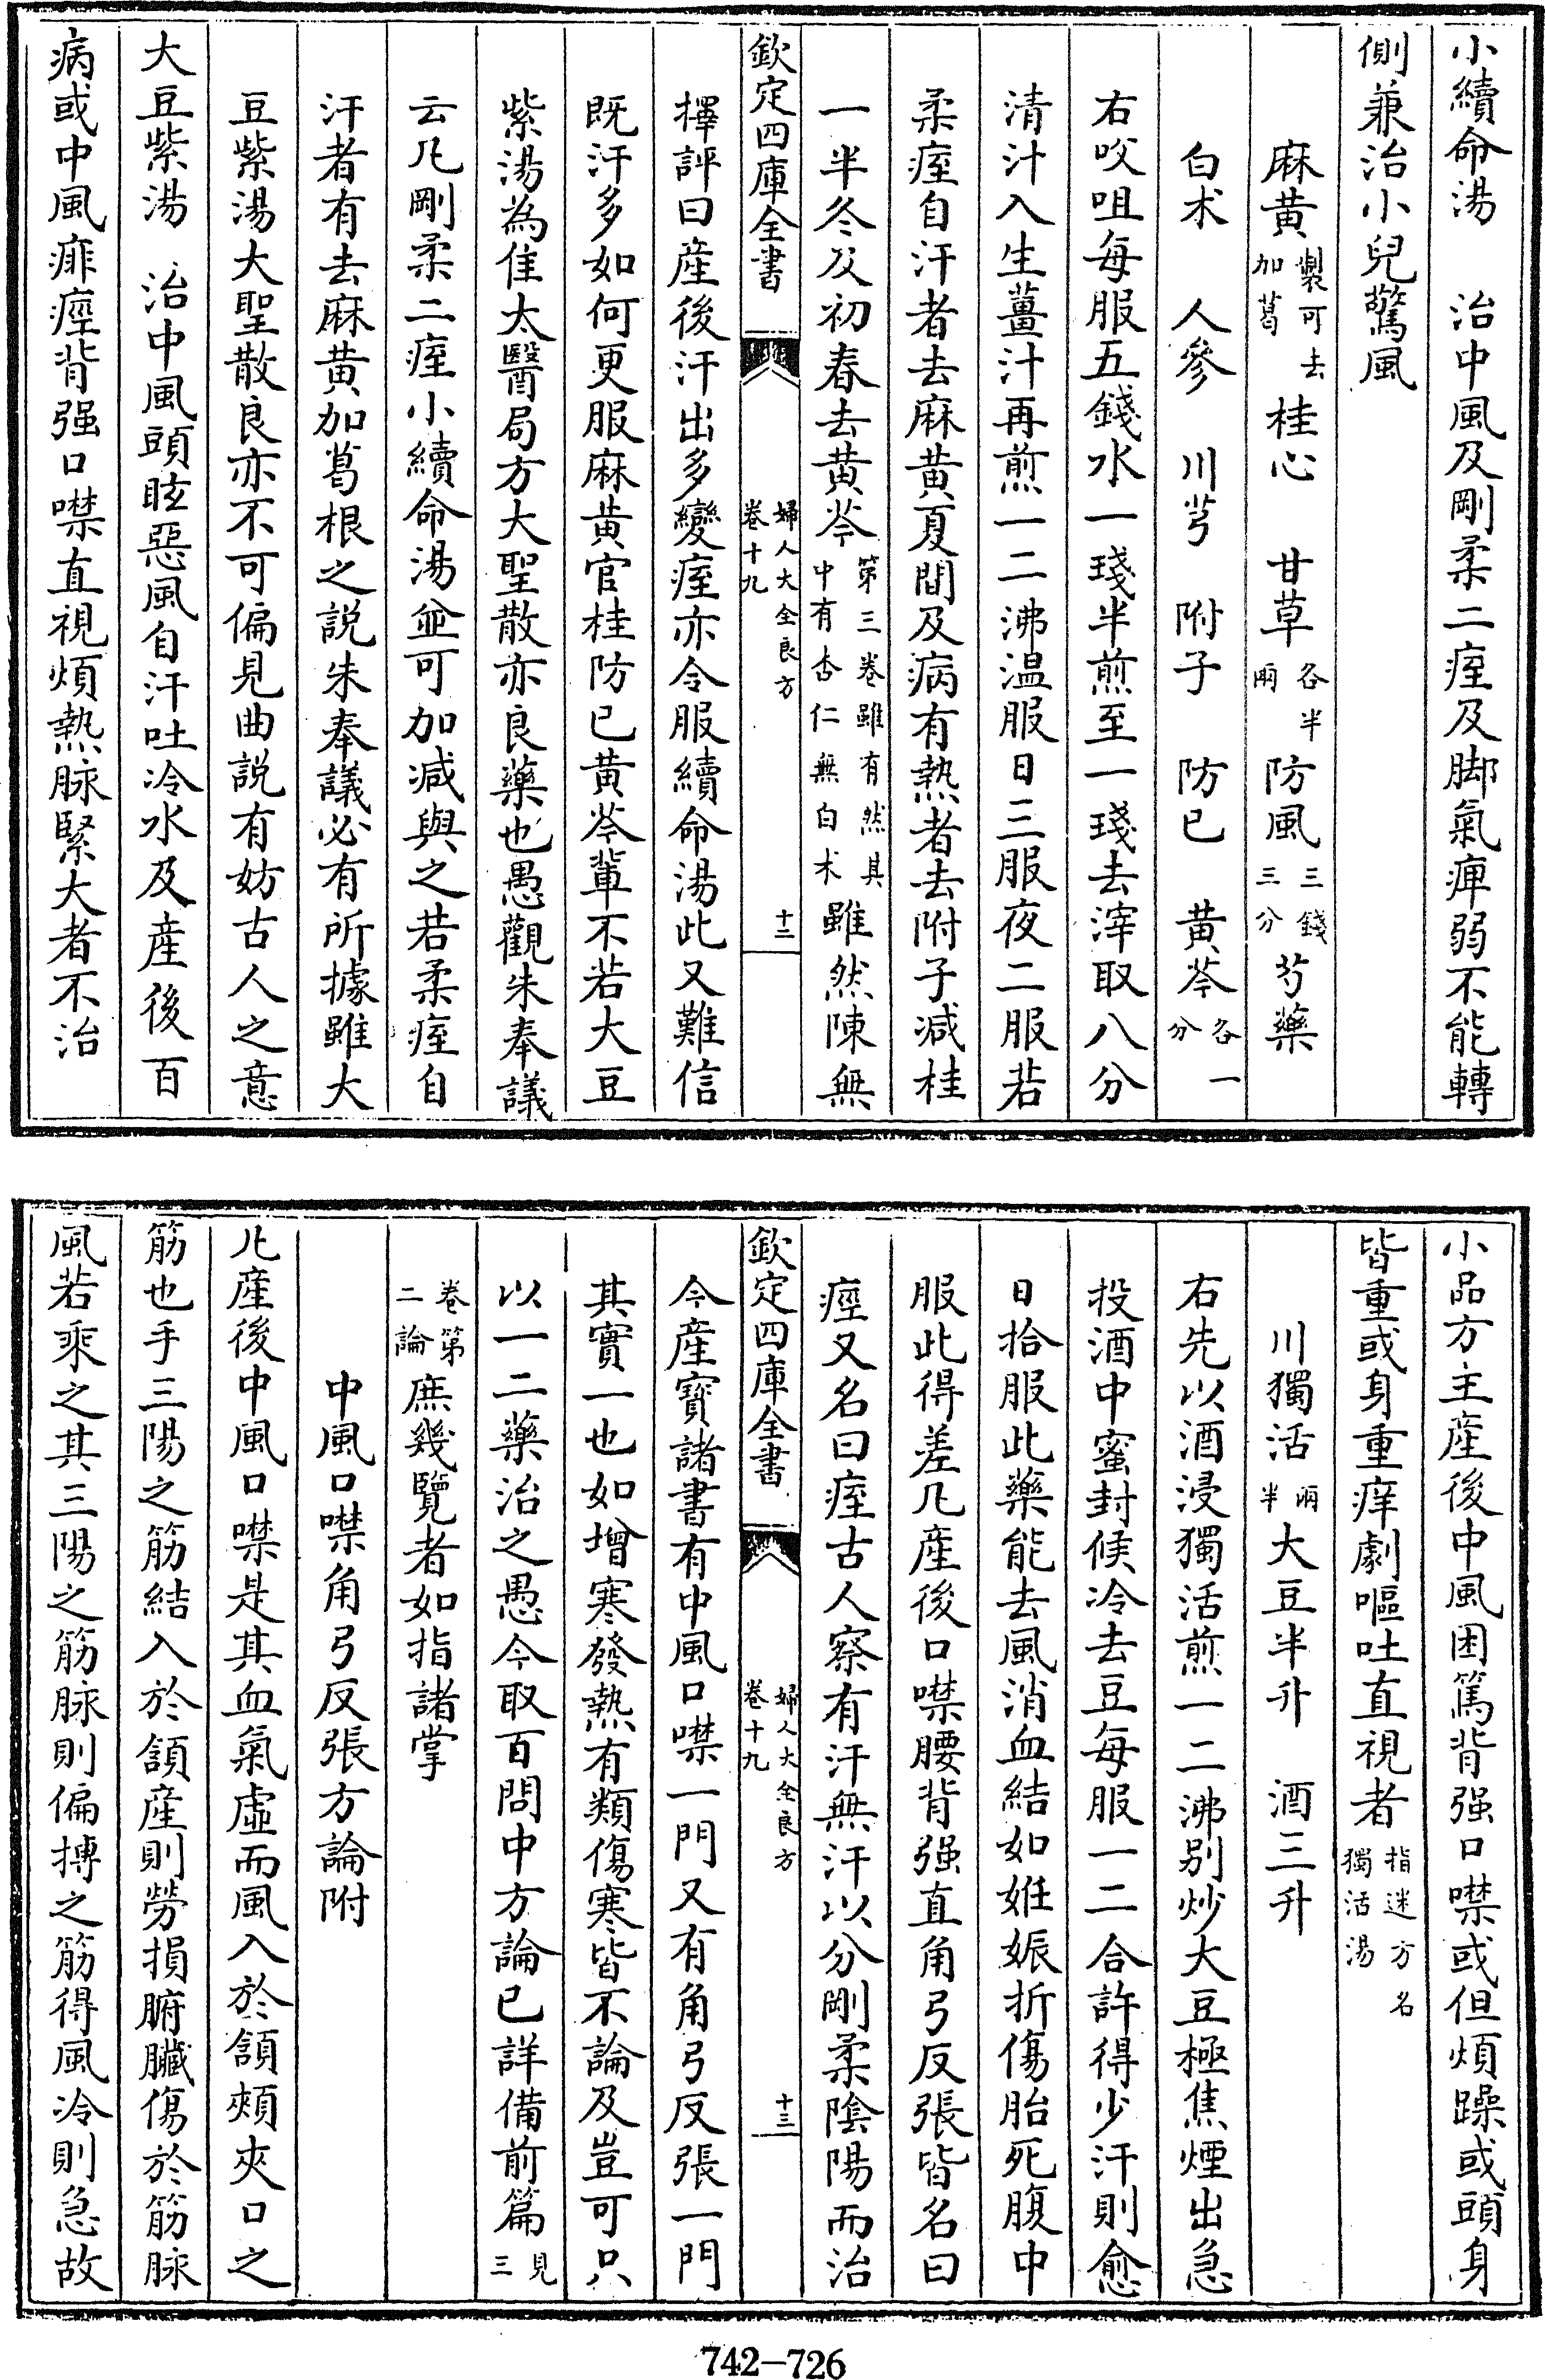 小續命湯　治中風及剛柔二痓及脚氣痺弱不能轉
側兼治小兒驚風
麻黄製可去加葛　桂心　甘草各半兩　防風三錢三分　芍藥
白术　人參　川芎　附子　防已　黄芩各一分
右㕮咀每服五錢水一琖半煎至一琖去滓取八分
清汁入生薑汁再煎一二沸温服日三服夜二服若
柔痓自汗者去麻黄夏間及病有熱者去附子減桂
一半冬及初春去黄芩第三卷雖有然其中有杏仁無白术雖然陳無
欽定四庫全書　婦人大全良方卷十九　十二
擇評曰産後汗出多變痓亦令服續命湯此又難信
既汗多如何更服麻黄官桂防已黄芩輩不若大豆
紫湯為佳太醫局方大聖散亦良藥也愚觀朱奉議
云凡剛柔二痓小續命湯並可加減與之若柔痓自
汗者有去麻黄加葛根之説朱奉議必有所據雖大
豆紫湯大聖散良亦不可偏見曲説有妨古人之意
大豆紫湯　治中風頭眩惡風自汗吐冷水及産後百
病或中風痱痙背强口噤直視煩熱脉緊大者不治
小品方主産後中風困篤背强口噤或但煩躁或頭身
皆重或身重痒劇嘔吐直視者指迷方名獨活湯
川獨活兩半　大豆半升　酒三升
右先以酒浸獨活煎一二沸别炒大豆極焦煙出急
投酒中蜜封候冷去豆每服一二合許得少汗則愈
日拾服此藥能去風消血結如妊娠折傷胎死腹中
服此得差凡産後口噤腰背强直角弓反張皆名曰
痙又名曰痓古人察有汗無汗以分剛柔陰陽而治
欽定四庫全書　婦人大全良方卷十九　十三
今産寶諸書有中風口噤一門又有角弓反張一門
其實一也如增寒發熱有類傷寒皆不論及豈可只
以一二藥治之愚今取百問中方論已詳備前篇見三
卷第二論庶幾覽者如指諸掌
中風口噤角弓反張方論附
凡産後中風口噤是其血氣虛而風入於頷頰夾口之
筋也手三陽之筋結入於頷産則勞損腑臟傷於筋脉
風若乘之其三陽之筋脉則偏搏之筋得風冷則急故
742-726